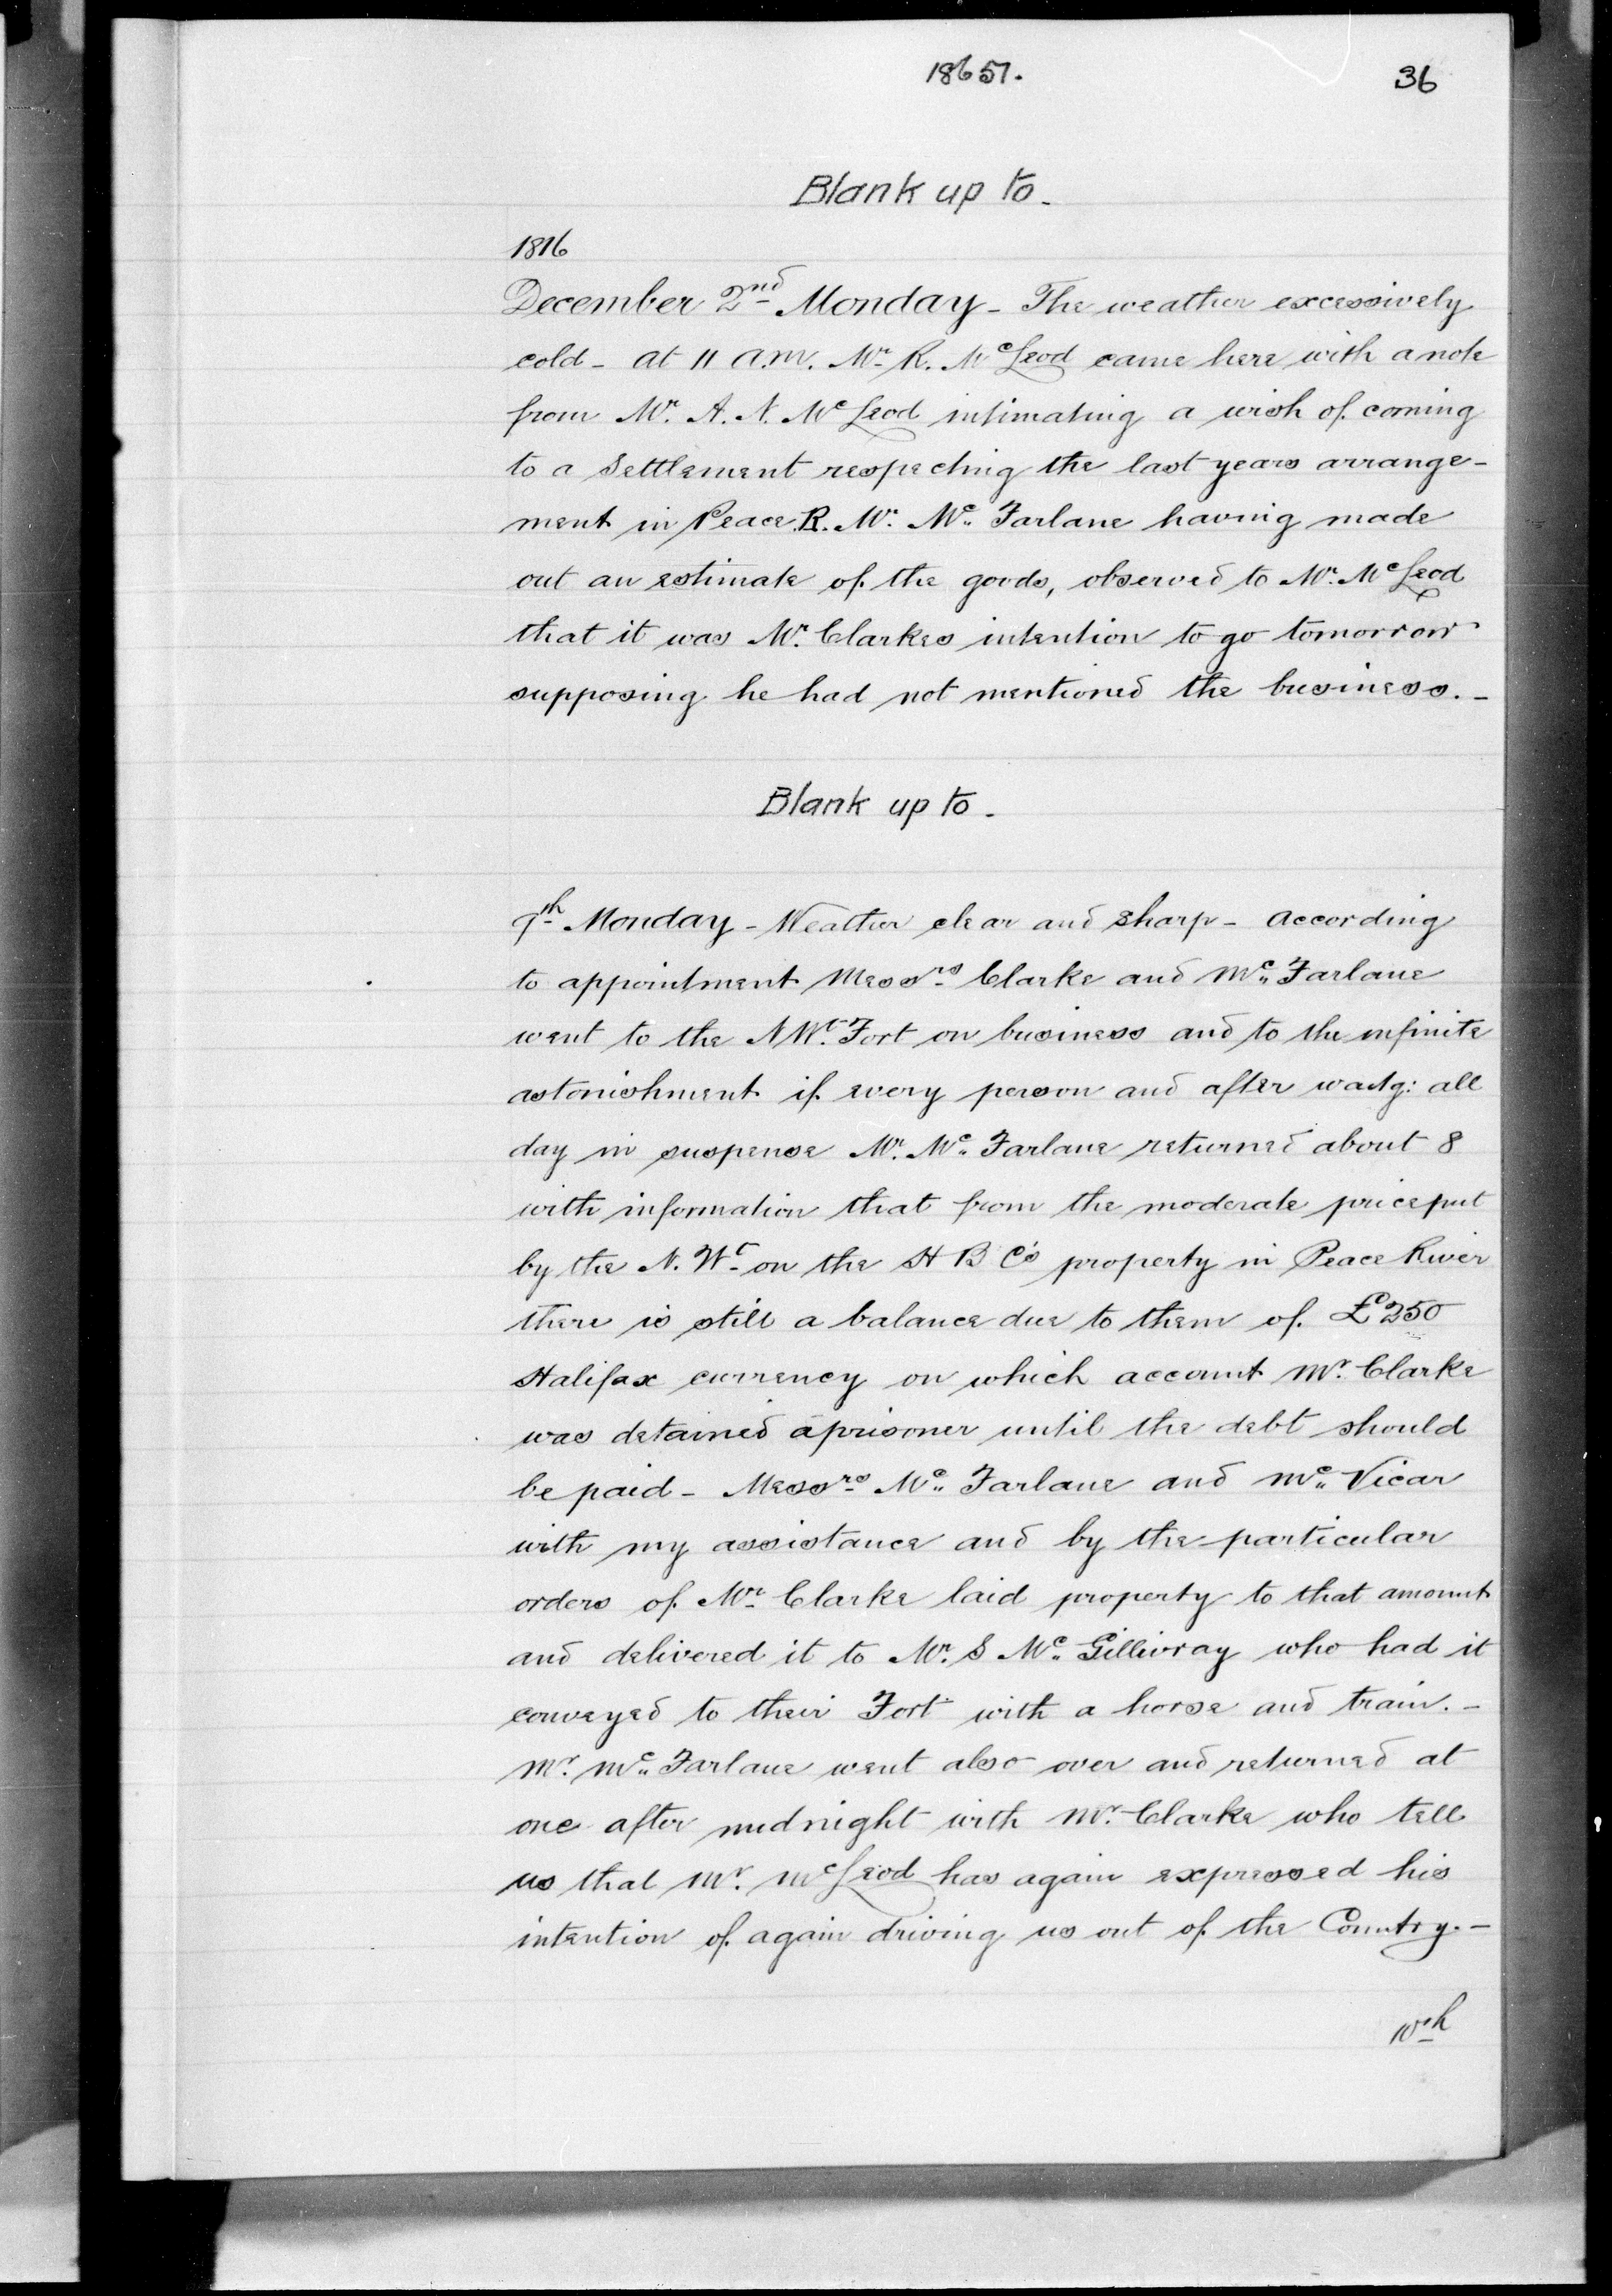 18651.
36
Blank up to.
1816
December 2nd Monday - The weather excessively
cold - at 11 a.m. Mr. R. McLeod came here with a note
from Mr. A. N. McLeod intimating a wish of coming
to a Settlement respecting the last years arrange-
ment in Peace R. Mr. Mc Farlane having made
out an estimate of the goods, observed to Mr. McLeod
that it was Mr. Clarkes intention to go tomorrow
supposing he had not mentioned the business. -
Blank up to.
9th Monday - Weather clear and sharp - according
to appointment Messrs Clarke and Mc Farlane
went to the N Wt. Fort on business and to the infinite
astonishment if every person and after waitg: all
day in suspense Mr. Mc Farlane returned about 8
with information that from the moderate price put
by the N. Wt on the H B Co's property in Peace River
there is still a balance due to them of £250
Halifax currency on which account Mr. Clarke
was detained a prisoner until the debt should
be paid - Messrs Mc Farlane and Mc Vicar
with my assistance and by the particular
orders of Mr Clarke laid property to that amount
and delivered it to Mr. S Mc Gillivray who had it
conveyed to their Fort with a horse and train. -
Mr. Mc Farlane went also over and returned at
one after midnight with Mr. Clarke who tell
us that Mr. McLeod has again expressed his
intention of again driving us out of the Country. -
10th